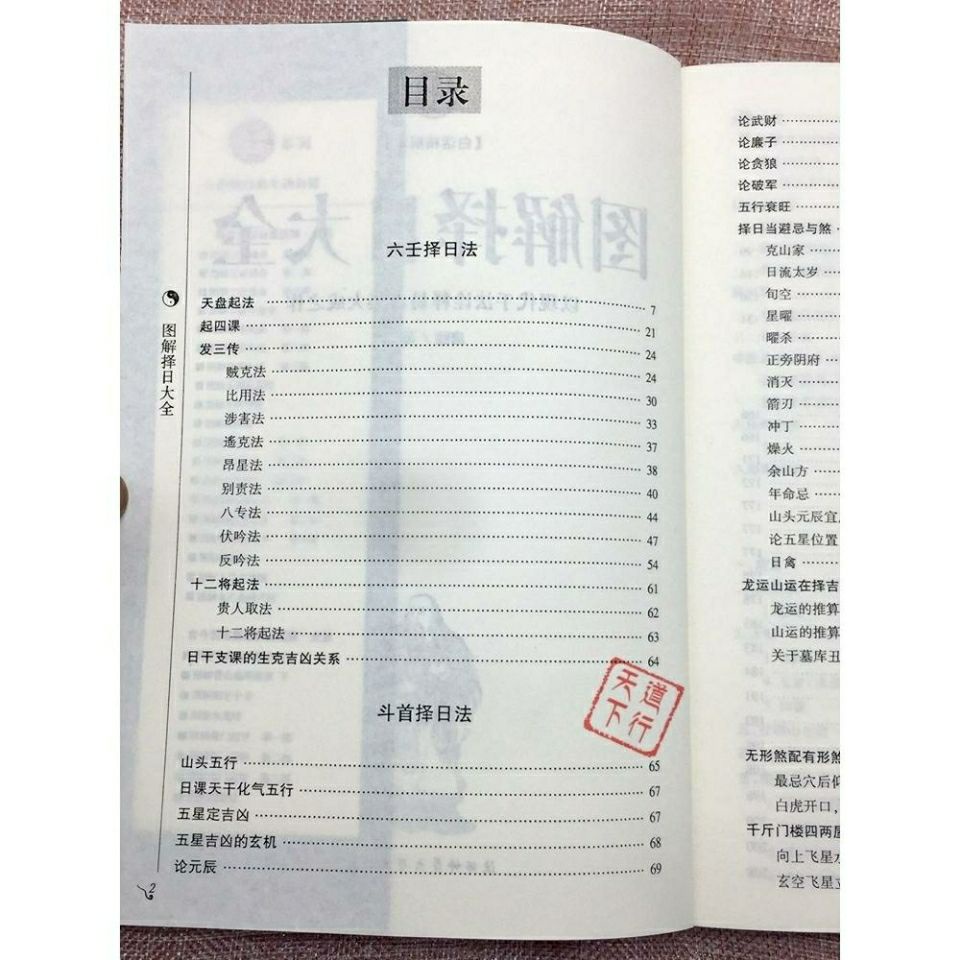 目录
六壬择日法
天盘起法 7
起四课 21
发三传 24
贼克法 24
比用法 30
涉害法 33
遥克法 37
昴星法 38
别责法 40
八专法 44
伏吟法 47
反吟法 54
十二将起法 61
贵人取法 62
十二将起法 63
日干支课的生克吉凶关系 64
斗首择日法
山头五行 65
日课天干化气五行 67
五星定吉凶 67
五星吉凶的玄机 68
论元辰 69
图解择日大全
2
天道
下行
论武财
论廉子
论贪狼
论破军
五行衰旺
择日当避忌与煞
克山家
日流太岁
旬空
星曜
曜杀
正旁阴府
消灭
箭刃
冲丁
燥火
余山方
年命忌
山头元辰宜
论五星位置
日禽
龙运山运在择吉
龙运的推算
山运的推算
关于墓库丑
无形煞配有形煞
最忌穴后仰
白虎开口，
千斤门楼四两屋
向上飞星水
玄空飞星立